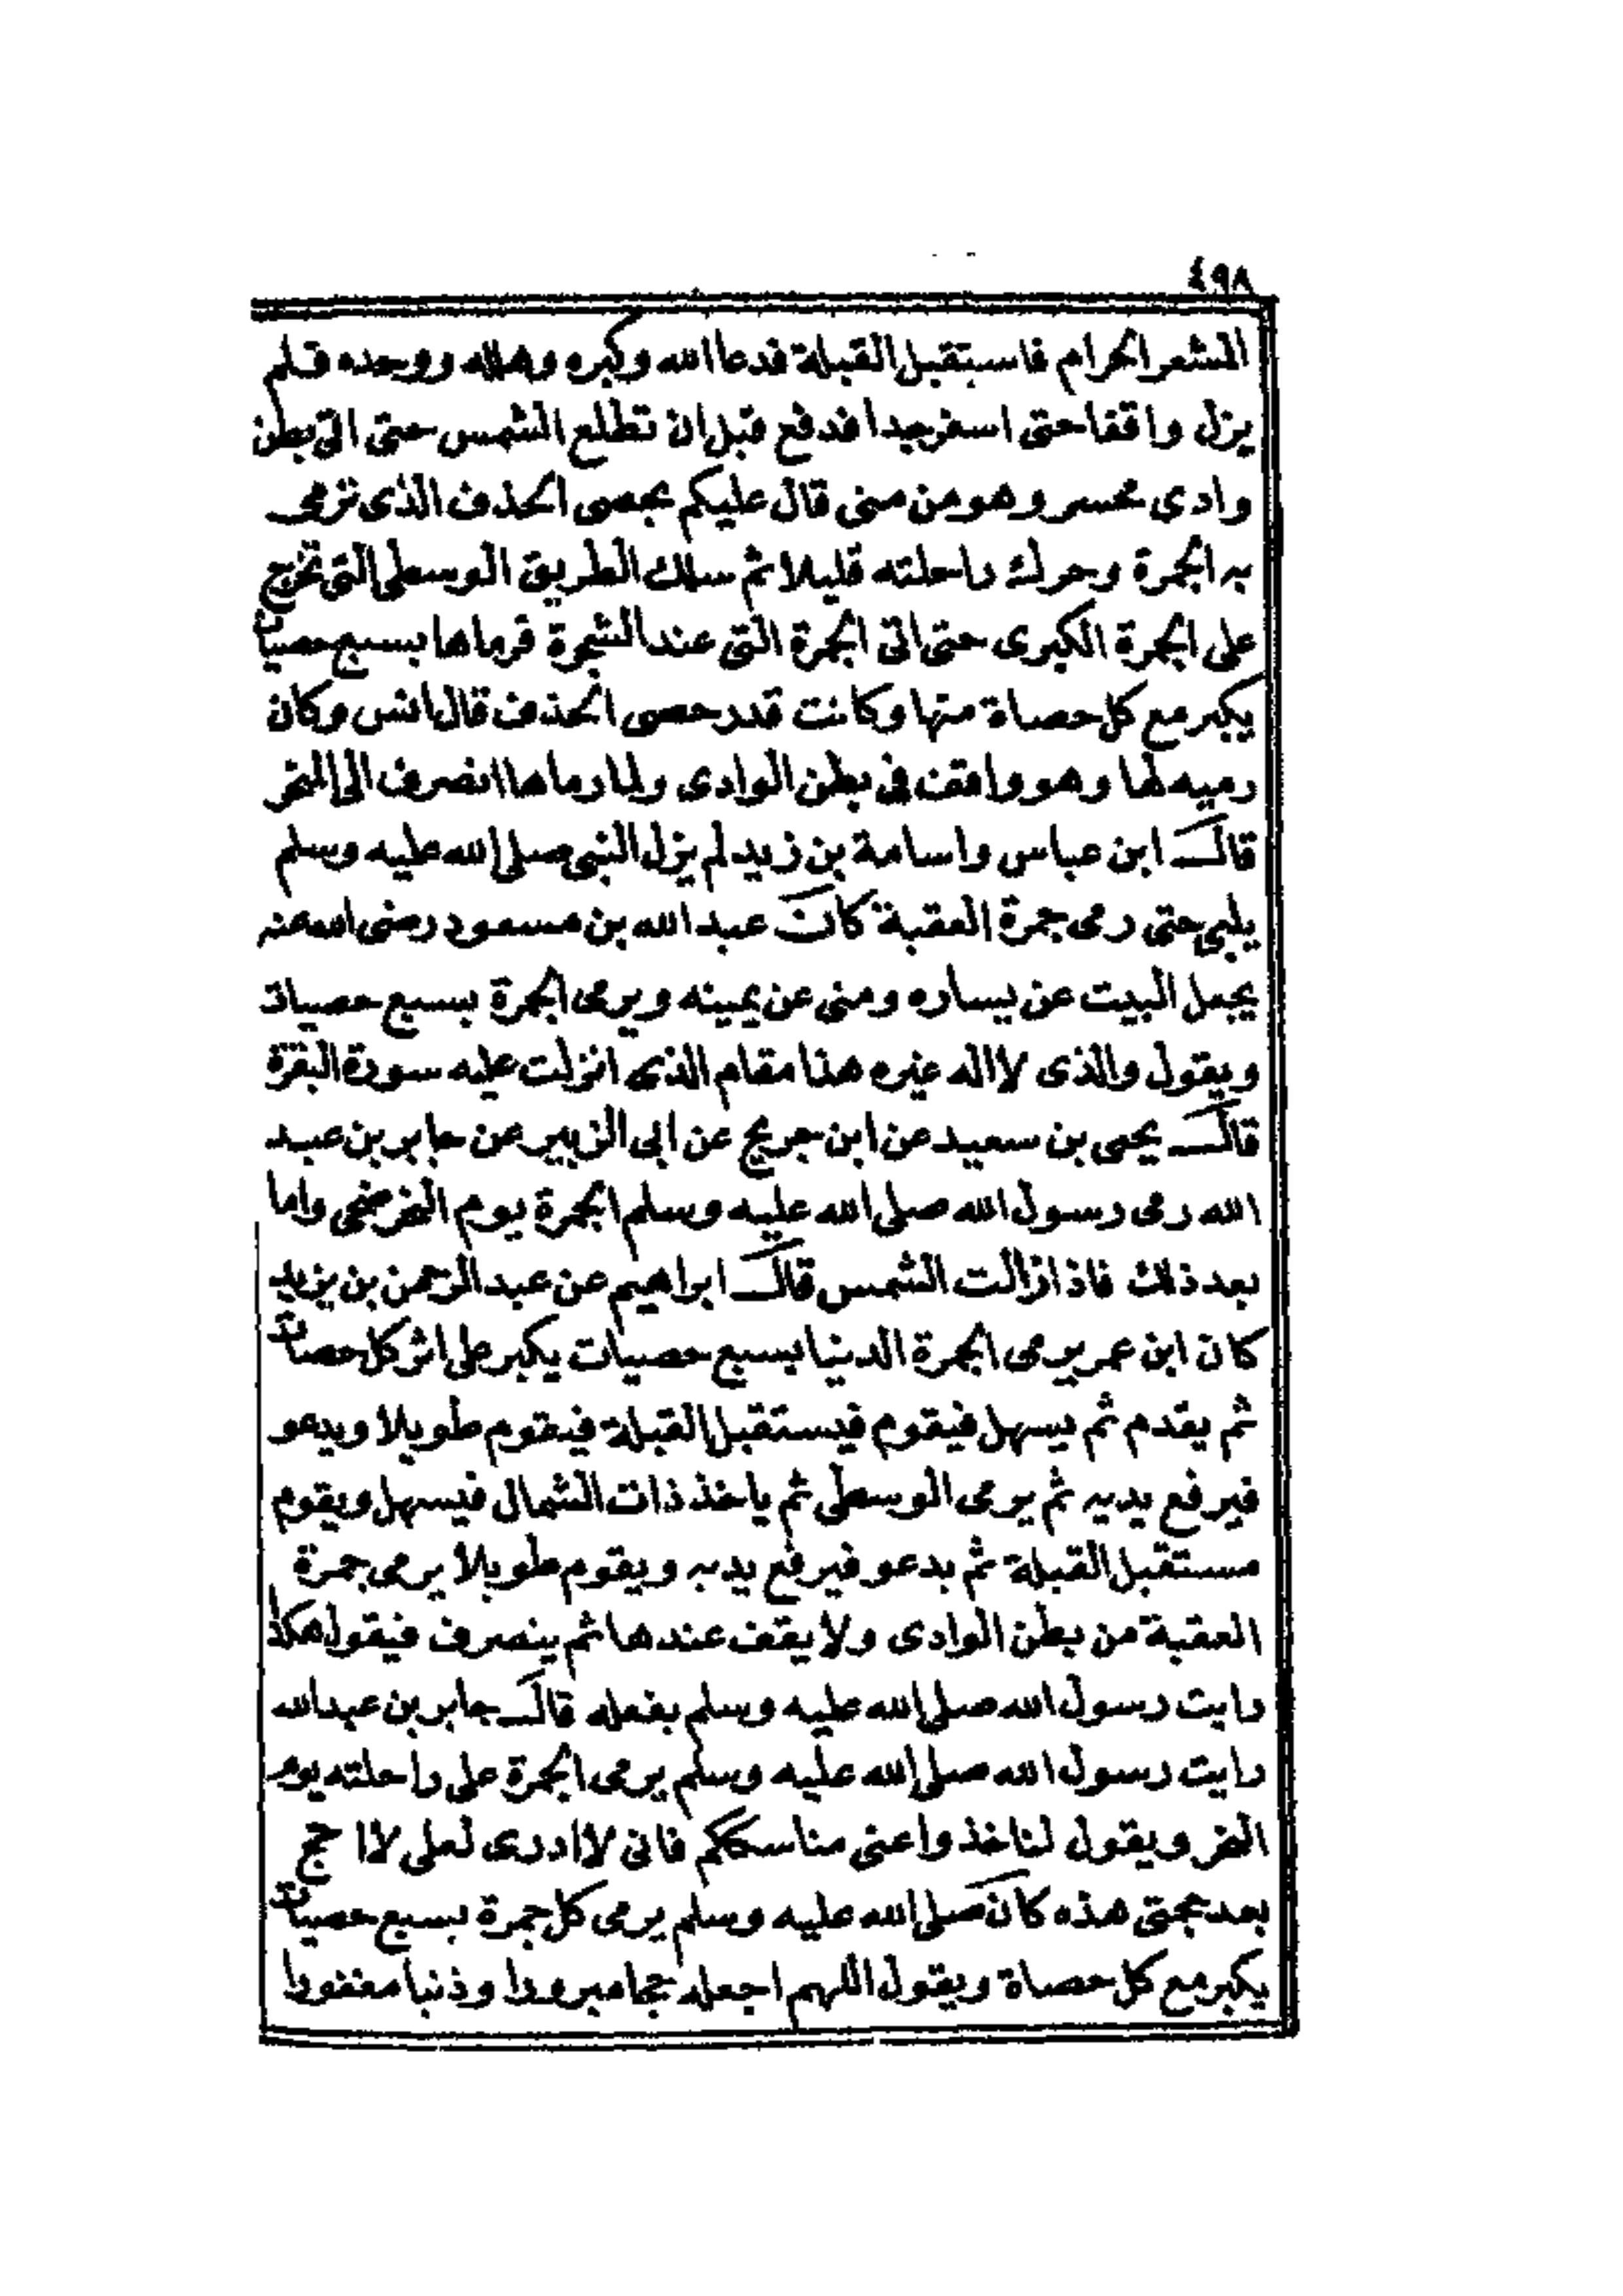 ٤٩٨
المشعر الحرام فاستقبل القبلة فدعا الله وكبره وهلله ووحده فلم
يزل واقفا حتى اسفر جدا فدفع قبل ان تطلع الشمس حتى اتى بطن
وادى محسر وهو من منى قال عليكم بحصى الخذف الذى ترمى
به الجمرة وحرك راحلته قليلا ثم سلك الطريق الوسطى التى تخرج
على الجمرة الكبرى حتى اتى الجمرة التى عند الشجرة فرماها بسبع حصيات
يكبر مع كل حصاة منها وكانت قدر حصى الخذف قال انس وكان
رميه لها وهو واقف فى بطن الوادى ولما رماها انصرف الى المنحر
قال ابن عباس واسامة بن زيد لم يزل النبى صلى الله عليه وسلم
يلبى حتى رمى جمرة العقبة كان عبد الله بن مسعود رضى الله عنه
يجعل البيت عن يساره ومنى عن يمينه ويرمى الجمرة بسبع حصيات
ويقول والذى لا اله غيره هذا مقام الذى انزلت عليه سورة البقرة
قال يحيى بن سعيد عن ابن جريج عن ابى الزبير عن جابر بن عبد
الله رمى رسول الله صلى الله عليه وسلم الجمرة يوم النحر ضحى واما
بعد ذلك فاذا زالت الشمس قال ابراهيم عن عبد الرحمن بن يزيد
كان ابن عمر يرمى الجمرة الدنيا بسبع حصيات يكبر على اثر كل حصاة
ثم يقدم ثم يسهل فيقوم فيستقبل القبلة فيقوم طويلا ويدعو
فيرفع يديه ثم يرمى الوسطى ثم ياخذ ذات الشمال فيسهل ويقوم
مستقبل القبلة ثم يدعو فيرفع يديه ويقوم طويلا يرمى جمرة
العقبة من بطن الوادى ولا يقف عندها ثم ينصرف فيقول هكذا
رايت رسول الله صلى الله عليه وسلم يفعله قال جابر بن عبد الله
رايت رسول الله صلى الله عليه وسلم يرمى الجمرة على راحلته يوم
النحر ويقول لنا خذوا عنى مناسككم فانى لا ادرى لعلى لا احج
بعد حجتى هذه كان صلى الله عليه وسلم يرمى كل جمرة بسبع حصيات
يكبر مع كل حصاة ويقول اللهم اجعله حجا مبرورا وذنبا مغفورا